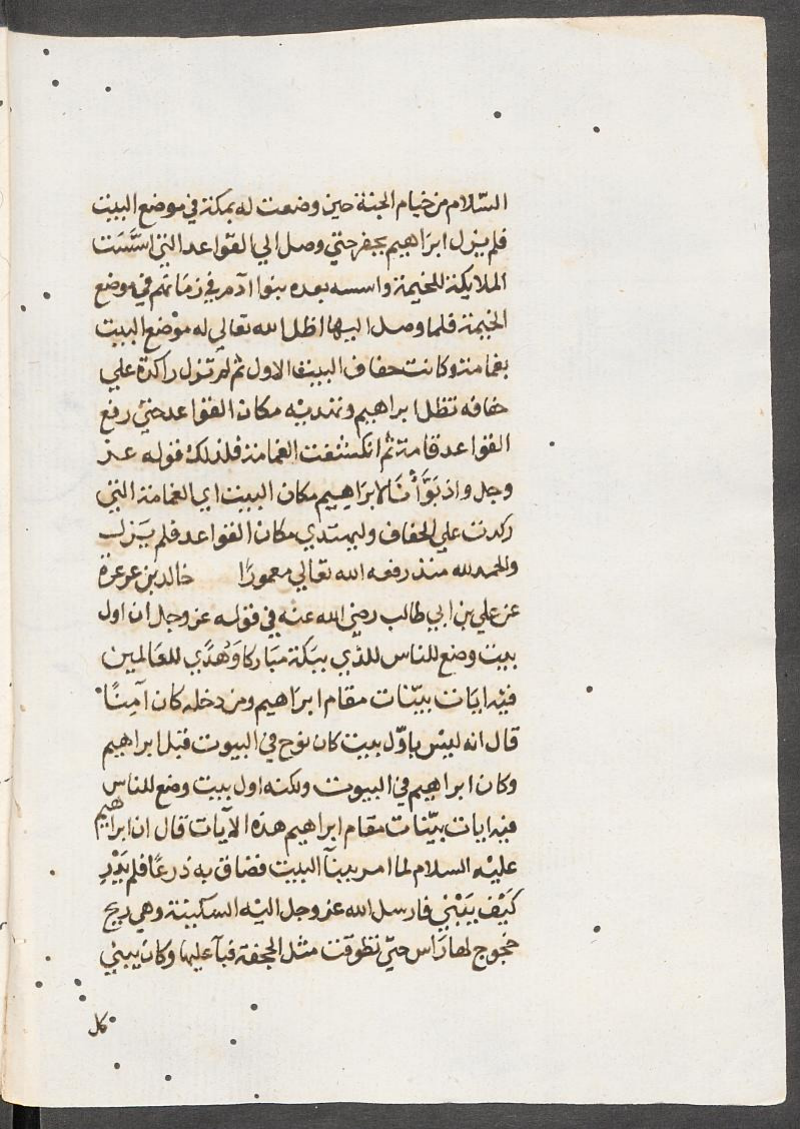 السّلام من خيام الجنة حين وضعت له بمكة في موضع البيت
فلم يزل ابرَاهيم يحفر حتي وصل الي القوَاعد التي اسَّسَت
الملايكة للخيمة واسسه بعده بنوا آدم في زمَانهم في موضع
الخيمة فلما وصل اليها اظل الله تعالي له موْضع البيت
بغمامة وكانت حفاف البيت الاول ثم لم تزل راكدة علي
حفافه تظل ابراهيم وتهديه مكان القواعد حتي رفع
القواعد قامة ثم انكشفت الغمامة فلذلك قوله عز
وجل واذ بَوَّأْنَا لابرَاهِيم مكان البيت اي الغمامة التي
ركدت علي الحفاف وليهتدي مكان القواعد فلم يَزل
والحمد لله منذ رفعه الله تعالي معمورًا خالد بن عرعرة
عن علي بن ابي طالب رضي الله عنه في قوله عز وجل ان اول
بيت وضع للناس للذي ببَكة مبَاركا وَهُدًي للعَالمين
فيه ايَات بيّنات مقام ابرَاهيم ومن دخله كان آمِنًا
قال انه ليس باوّل بيت كان نوح في البيوت قبل ابراهيم
وكان ابراهيم في البيوت ولكنه اول بيت وضع للناس
فيه ايات بيّنات مقام ابراهيم هذه الآيات قال ان ابراهيم
عليه السلام لما امر ببنآ البيت فضاق به ذرعًا فلم يَدْرِ
كَيْف يَبْني فارسل الله عز وجل اليْه السكينة وهي ريح
خجوج لها رَاس حتّي تطوقت مثل الحجفة فبنآ عليها وكان يبني
كل